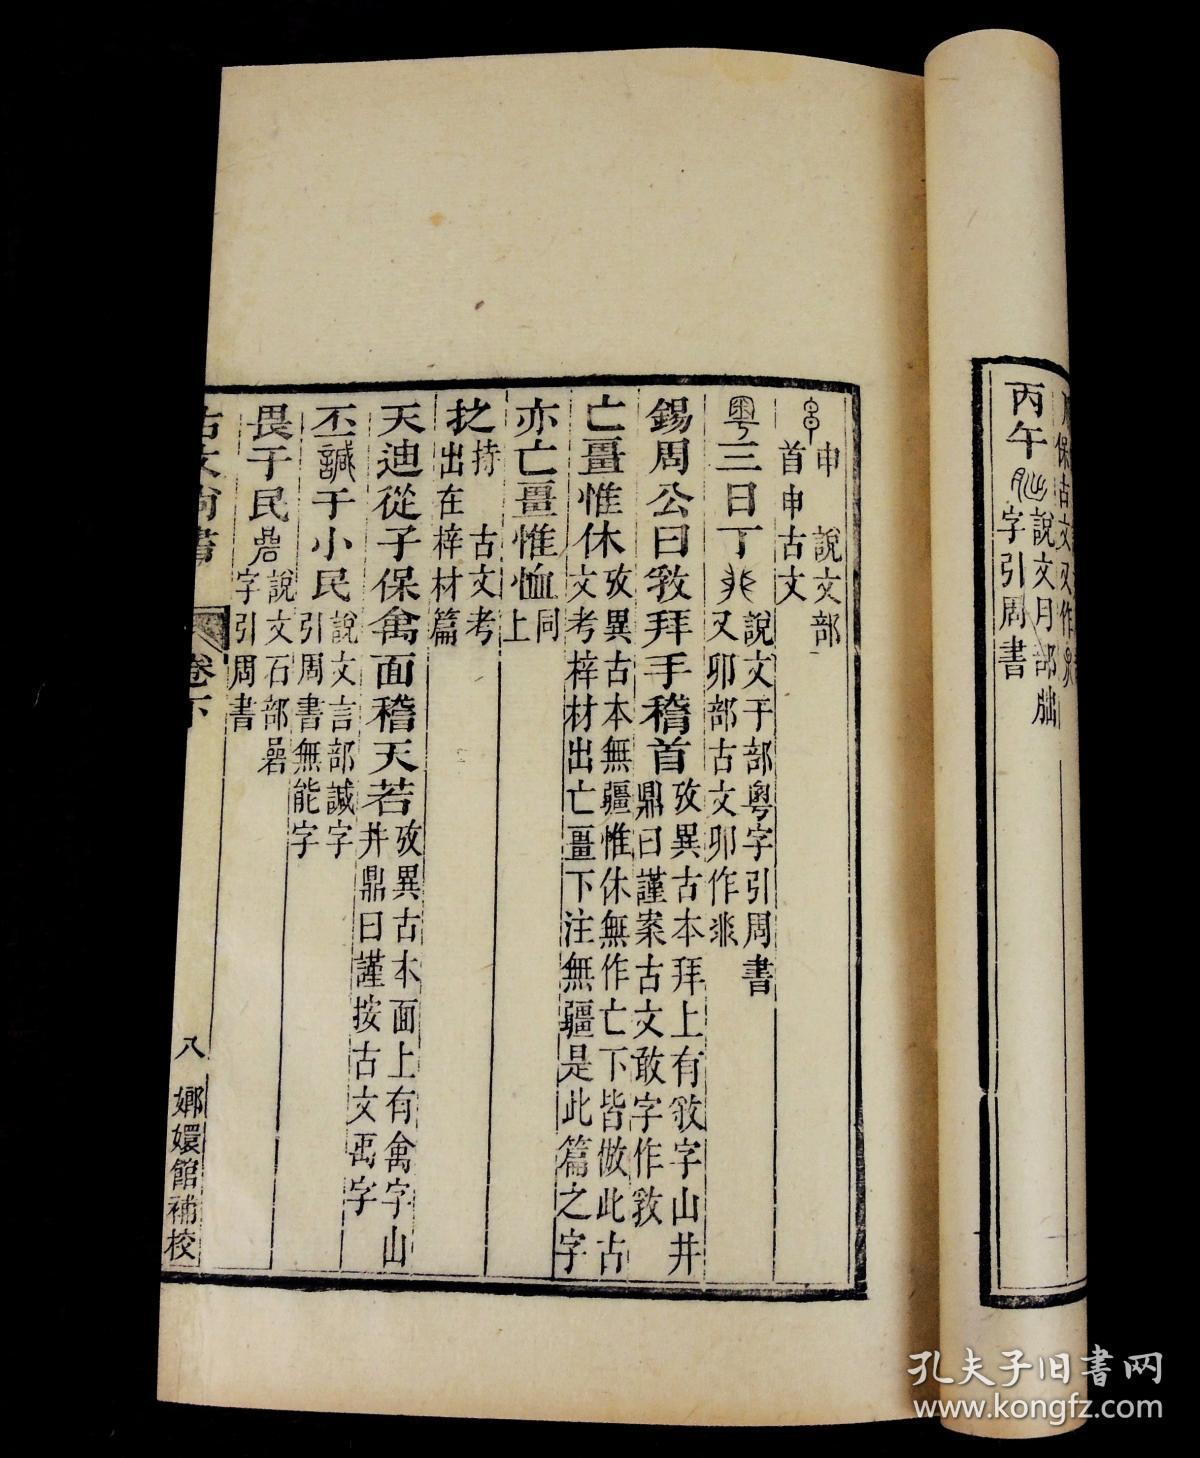 丙午朏說文月部朏
字引周書
申 說文部
首申古文
粵三日丁 說文于部粵字引周書
又卯部古文卯作
錫周公曰敎拜手稽首攷異古本拜上有敎字山井
鼎曰謹案古文敢字作敎
亡畺惟休攷異古本無疆惟休無作亡下皆倣此古
文考梓材出亡畺下注無疆是此篇之字
亦亡畺惟恤同
上
扻持 古文考
出在梓材篇
天迪從子保禽面稽天若攷異古本面上有禽字山
井鼎曰謹按古文禹字
丕諴于小民說文言部諴字
引周書無能字
畏于民碞說文石部碞
字引周書
古文尚書 卷下
八 嫏嬛館補校
孔夫子旧书网
www.kongfz.com